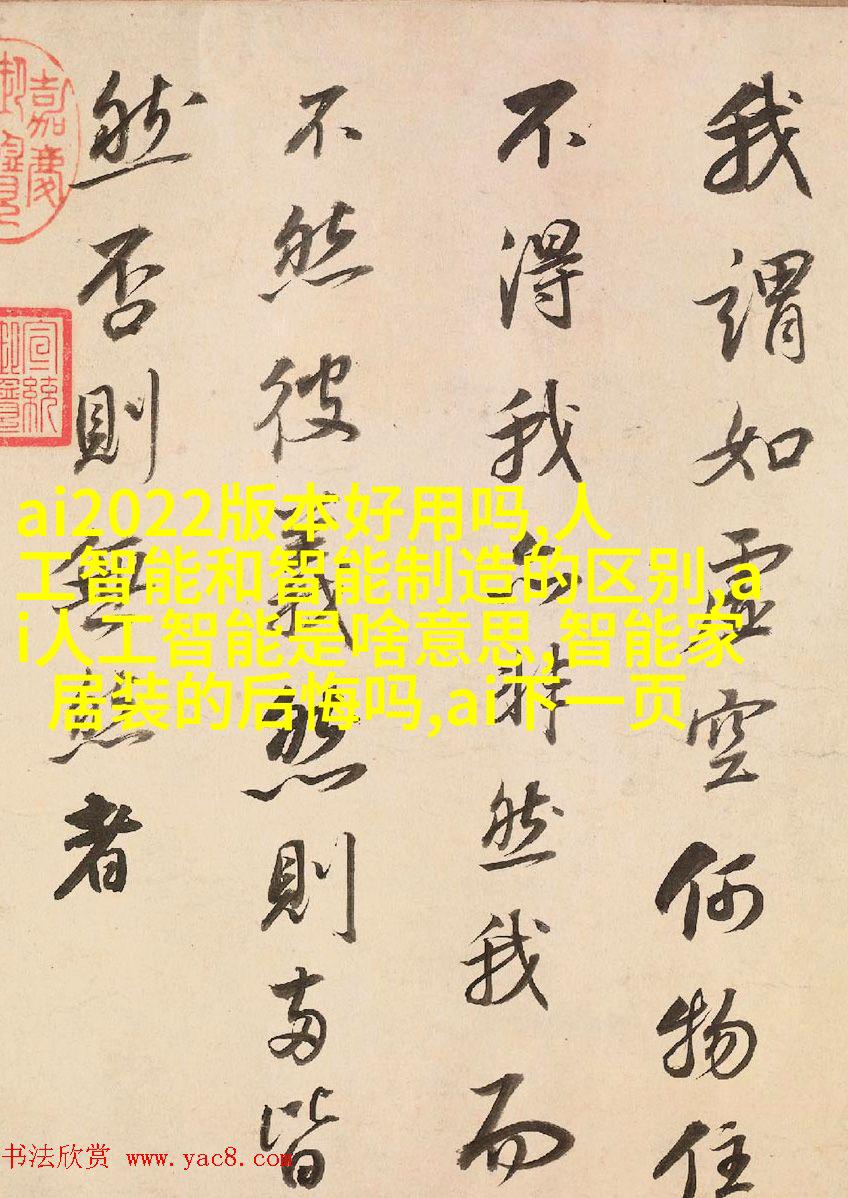 我謂如虛空何物住
不得我非然我而
不然彼義然則兩皆
然否則無然者
嘉慶
宣統
ai2022版本好用吗,人
工智能和智能制造的区别,a
i人工智能是啥意思,智能家
居装的后悔吗,ai下一页
书法欣赏 www.yac8.com